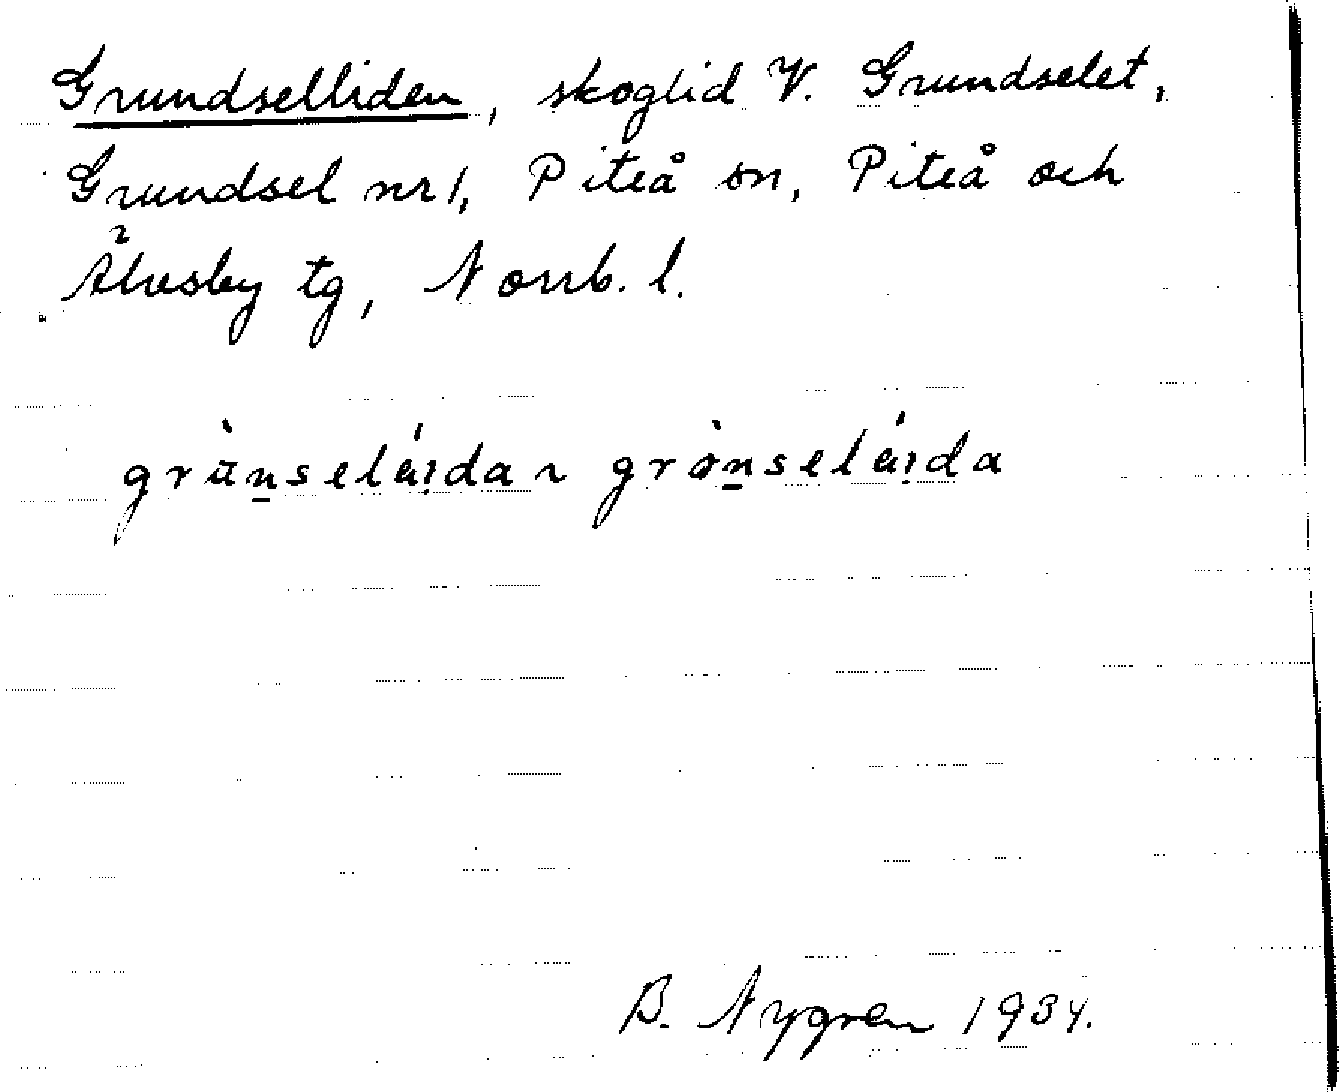 Grundselliden, skoglid V. Grundselet,
Grundsel nr 1, Piteå sn, Piteå och
Älvsby tg, Norrb. l.
grùn̠selái̩da ~ grøǹ̠selái̩da
B. Nygren 1934.